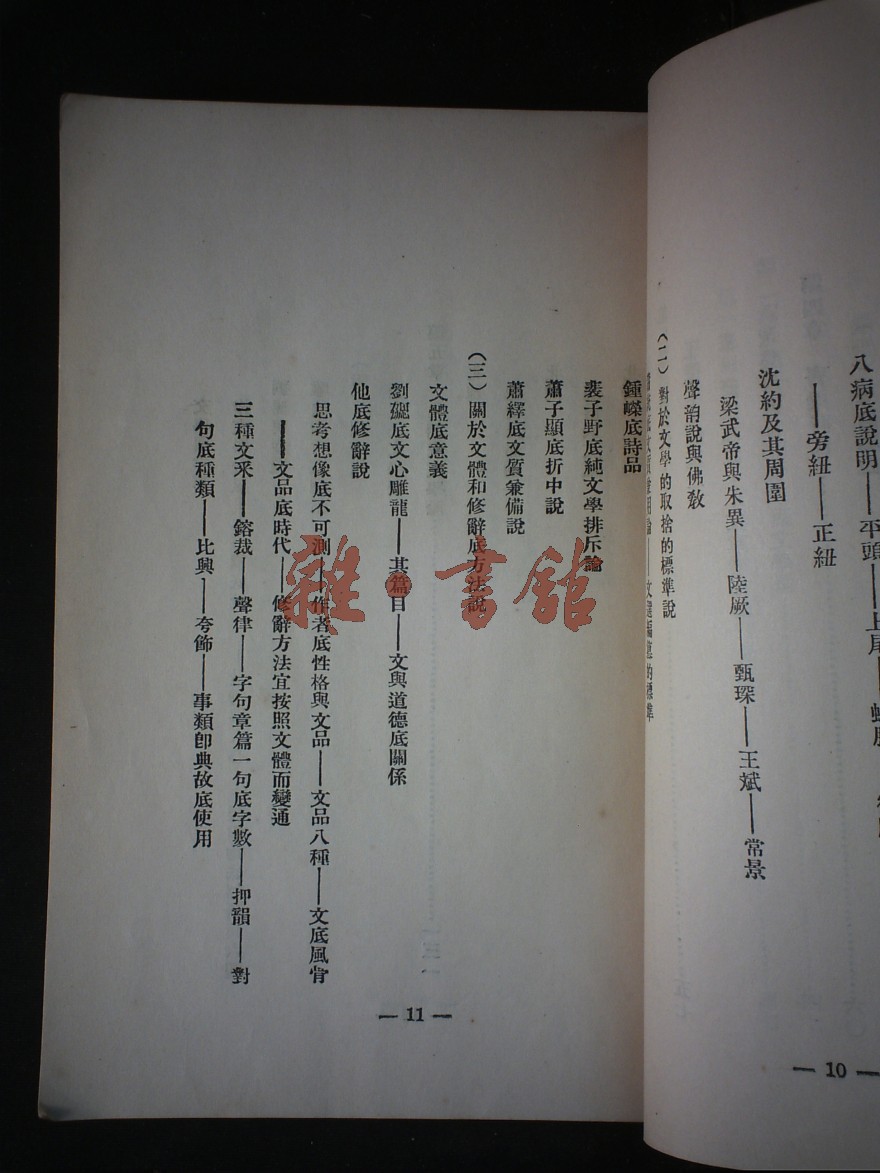 八病底說明——平頭——上尾——
——旁紐——正紐
沈約及其周圍
梁武帝與朱异——陸厥——甄琛——王斌——常景
聲韵說與佛敎
(二)對於文學的取捨的標準說
鍾嶸底詩品
裴子野底純文學排斥論
蕭子顯底折中說
蕭繹底文質兼備說
(三)關於文體和修辭底方法說
文體底意義
劉勰底文心雕龍——其篇目——文與道德底關係
他底修辭說
思考想像底不可測——作者底性格與文品——文品八種——文底風骨
——文品底時代——修辭方法宜按照文體而變通
三種文釆——鎔裁——聲律——字句章篇一句底字數——押韻——對
句底種類——比興——夸飾——事類卽典故底使用
— 11 —
— 10 —
雜·書館